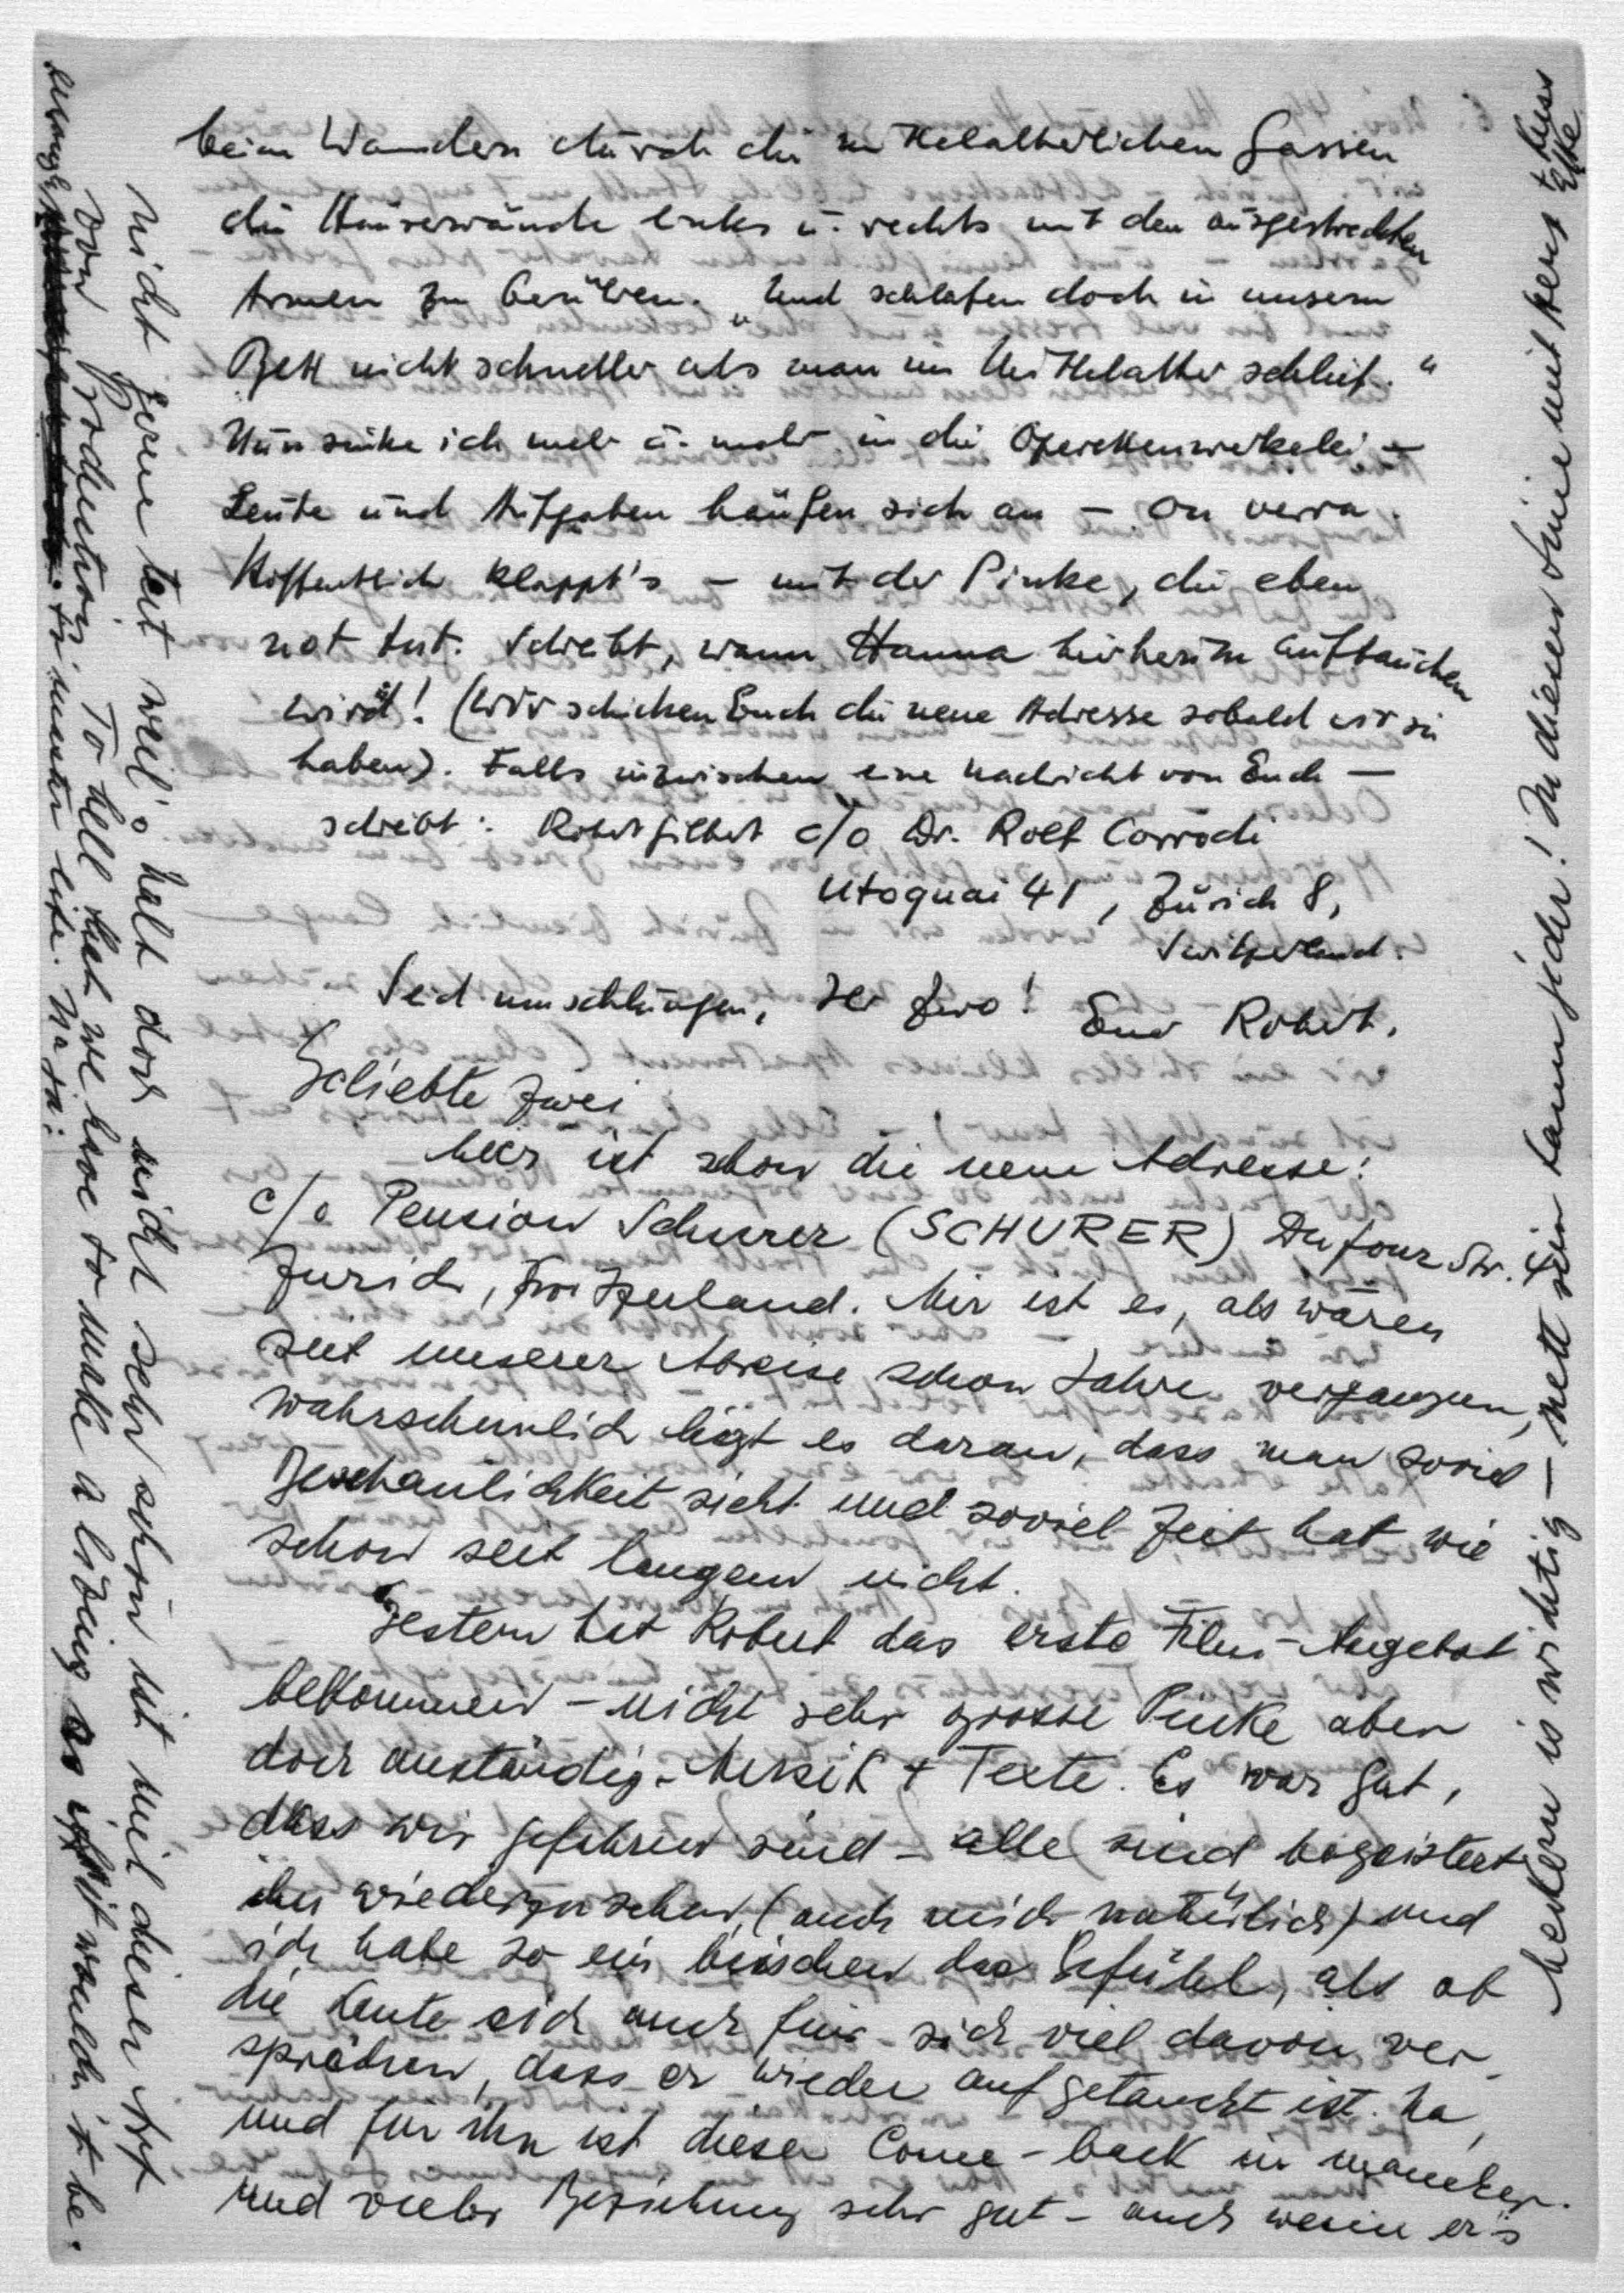 beim Wandern durch die mittelalterlichen Gassen
die Häuserwände links u. rechts mit den ausgestreckten
Armen zu berühren. „Und schlafen doch in unserm
Bett nicht schneller als man im Mittelalter schlief.“
Nun sinke ich mehr u. mehr in die Operettenwerkelei –
Leute und Aufgaben häufen sich an – on verra.
Hoffentlich klappt's – mit der Pinke, die eben
not tut. Schreibt, wann Hanna hierherum auftauchen
wird! (Wir schicken Euch die neue Adresse sobald wir sie
haben). Falls inzwischen eine Nachricht von Euch –
schreibt: Robert Gilbert c/o Dr. Rolf Corrodi
Utoquai 41, Zürich 8,
Switzerland.
Seid umschlungen, Ihr Zwo! Euer Robert.
Geliebte Zwei
hier ist schon die neue Adresse:
c/o Pension Schurer (SCHURER) Dufour Str. 4
Zurich, Switzerland. Mir ist es, als wären
seit unserer Abreise schon Jahre vergangen,
wahrscheinlich liegt es daran, dass man soviel
Beschaulichkeit sieht und soviel Zeit hat wie
schon seit langem nicht.
Gestern hat Robert das erste Film-Angebot
bekommen – nicht sehr grosse Pinke aber
doch anständig – Musik + Texte. Es war gut,
dass wir gefahren sind – alle sind begeistert
ihn wiederzusehen, (auch mich natürlich) und
ich habe so ein bisschen das Gefühl, als ob
die Leute sich auch für sich viel davon ver-
sprächen, dass er wieder aufgetaucht ist. Na,
und für ihn ist dieser Come-back in mancher
und vieler Beziehung sehr gut – auch wenn er's
nicht gerne tut weil's halt doch nicht sehr schön ist mit dieser Art
von Production. To hell that we have to make a living as if it wouldn't be
enough to muster life. Na ja:
meckern is nichtig – nett sein kann jeder! In diesem Sinne mit Herz + Kuss
Elke